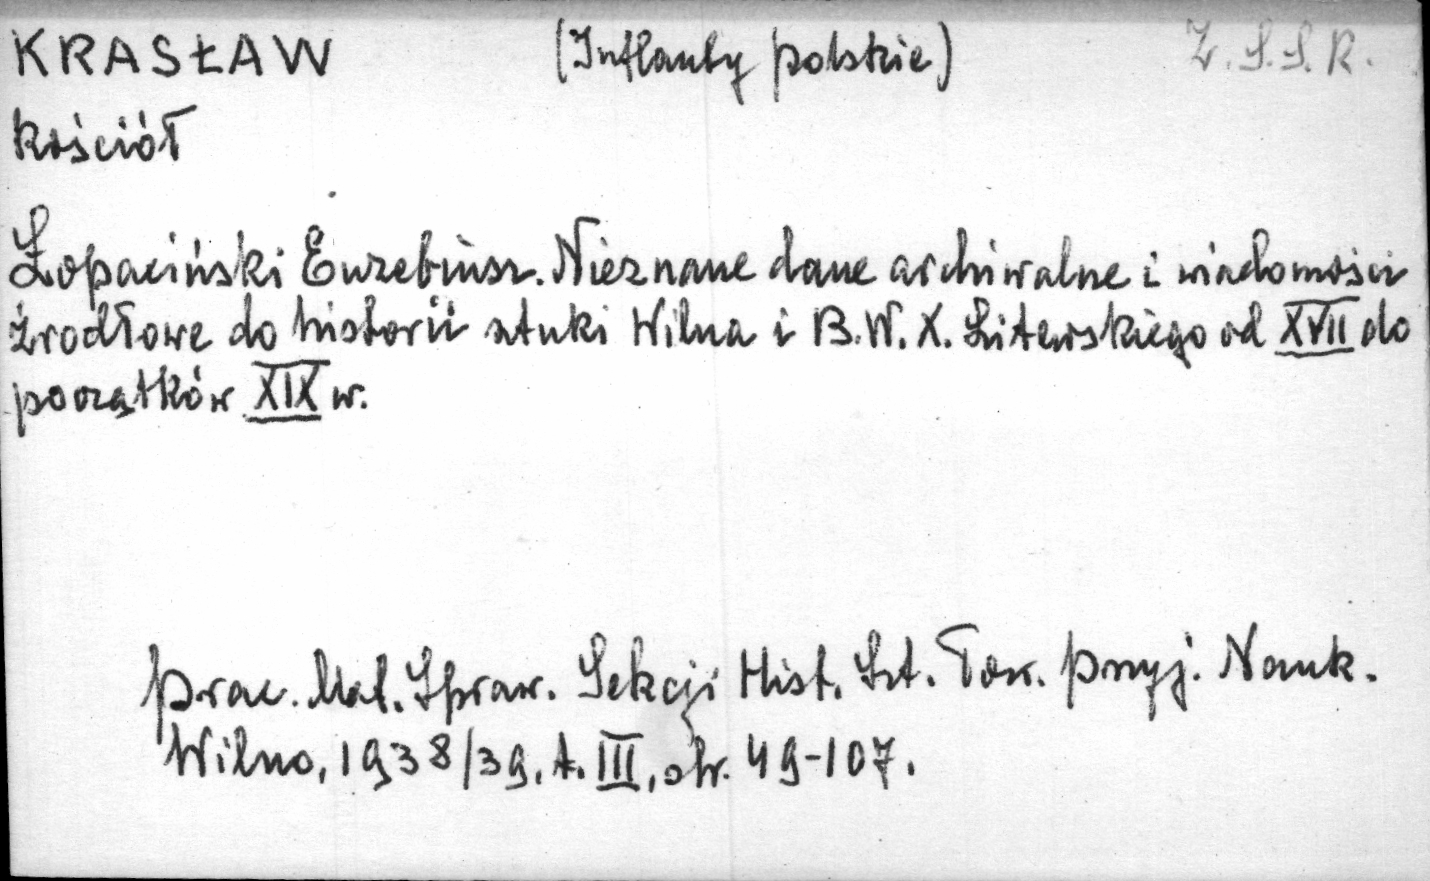 KRASŁAW (Inflanty polskie) Z.S.S.R.
kościół
Łopaciński Euzebiusz. Nieznane dane archiwalne i wiadomości
źrodłowe do historii sztuki Wilna i B.W.X. Litewskiego od XVII do
początków XIX w.
Prac. Mat. Spraw. Sekcji Hist. Szt. Tow. Przyj. Nauk.
Wilno, 1938/39, t. III, str. 49-107.